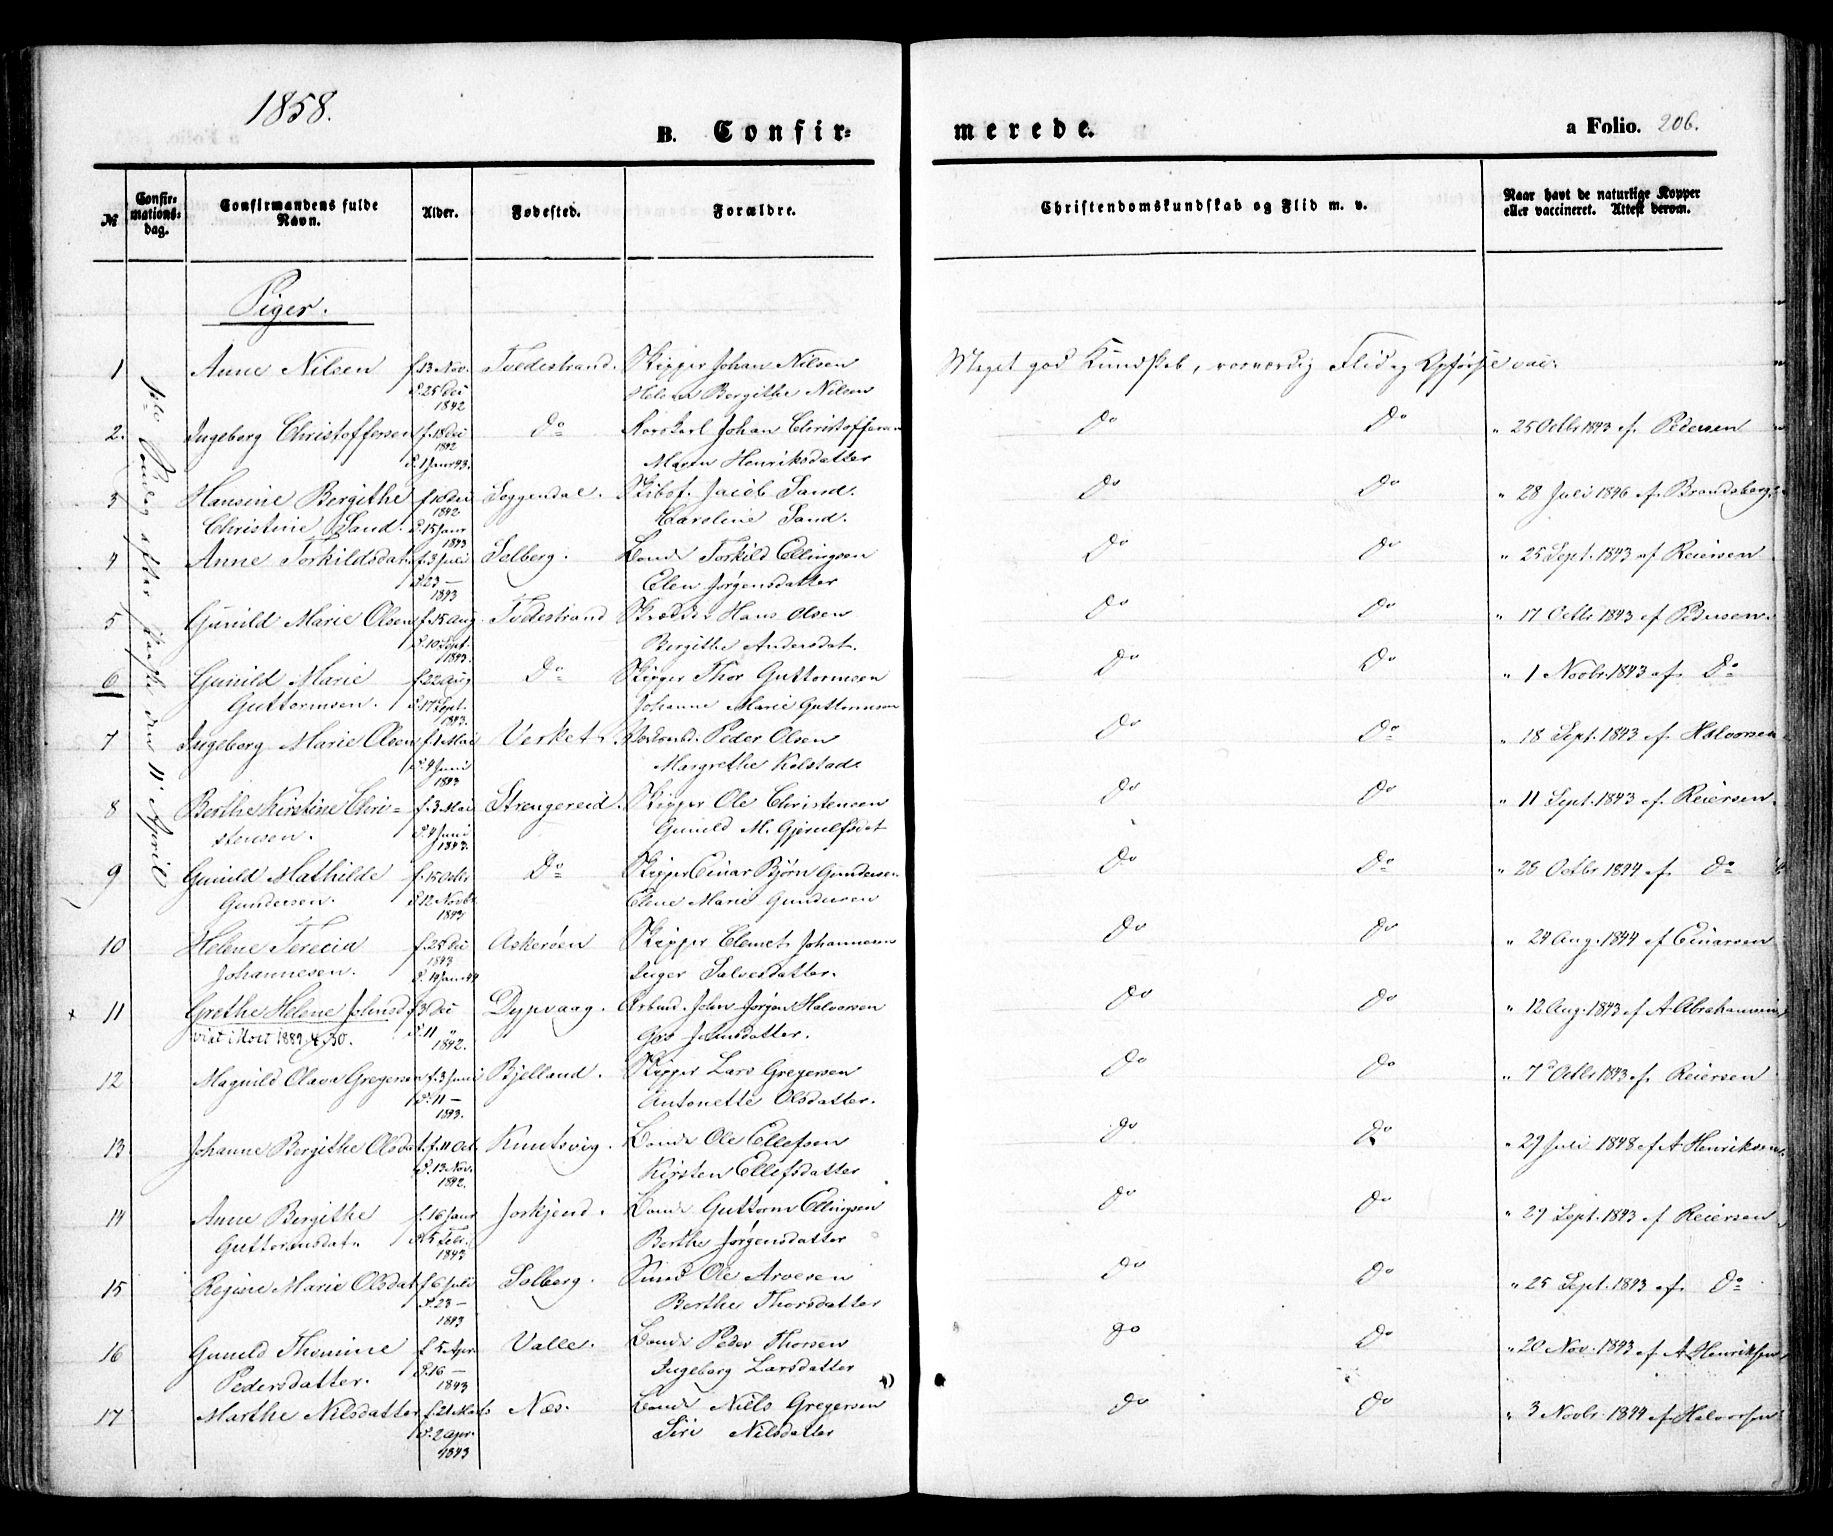 1858.
B. Confir-
merede.
a Folio. 206.
№
Confir-
mations-
dag.
Confirmandens fulde
Navn.
Alder.
Fødested.
Forældre.
Christendomskundskab og Flid m. v.
Naar havt de naturlige Kopper
eller vaccineret. Attest derom.
Piger.
1ste Søndag efter Paaske den 11' April
1 Anne Nilsen f. 13 Nov. Tvedestrand. Skipper Johan Nilsen Meget god Kundskab, Flid og Opførsel
d. 25 Dec Helene Bergithe Nilsen
1842
2. Ingeborg Christoffersen f. 18 Dec Do Johan Christoffersen Do Do " 25 Octbr 1843 af Pedersen
1842 Maren Henriksdatter
d. 1 Janr 43.
3 Hansine Bergithe f. 10 Dec Soggendal. Skibsf. Jacob Sand. Do Do " 28 Juli 1846 af Brandsberg
1842
Christine Sand. d. 15 Janr Caroline Sand.
1843
4 Anne Torkildsdat. f. 3 Juli Solberg. Bonde Torkild Ellingsen Do Do " 25 Sept. 1843 af Reiersen
d. 23 — Elen Jørgensdatter
1843
5 Gunild Marie Olsen f. 15 Aug. Tvedestrand Skrædder Hans Olsen Do Do " 17 Octbr 1843 af Pedersen.
d. 10 Sept. Bergithe Andersdat.
1843.
6 Gunild Marie f. 22 Aug Do Skipper Thor Guttormsen Do Do " 1 Novbr. 1843 af Do
Guttormsen. d. 17 Sept. Johanne Marie Guttormsen
1843.
7 Ingeborg Marie Olsen f. 1 Mai Verket. Peder Olsen Do Do " 18 Sept. 1843 af Halvorsen
d. 4 Juni Margrethe Kolstad
1843
8 Berthe Kirstine Chri- f. 3 Mai Strengereid. Skipper Ole Christensen Do Do " 11 Sept. 1843 af Reiersen.
stensen. d. 4 Juni Gunild M. Gjerulfsdat
1843.
9 Gunild Mathilde f. 15 Octbr Do Skipper Einar Bjørn Gundersen Do Do " 28 Octbr 1844 af Do
Gundersen. d. 12 Novbr Elene Marie Gundersen
1843
10 Helene Terecia f. 28 Dec Askerøen Skipper Clemet Johannesen Do Do " 24 Aug. 1844 af Einarsen
1843
Johannesen. d. 14 Janr 44 Inger Salvesdatter.
x 11 Grethe Helene Johnsd f. 3 Dec Dypvaag. Arbmd. John Jørgen Halvorsen Do Do " 12 Aug. 1843 af A. Abrahamsen
viet i Moet 1889 № 30. d. 11 " Gro Johnsdatter.
1842.
12 Magnild Olava Gregersen f. 3 Juni Bjelland. Skipper Lars Gregersen Do Do " 7 Octbr 1843 af Reiersen
d. 11 — Antonette Olsdatter.
1843.
13 Johanne Bergithe Olsdat. f. 11 Oct. Knutsvig. Bonde Ole Ellefsen Do Do " 29 Juli 1848 af A Henriksen
d. 13 Nov. Kirsten Ellefsdatter
1842.
14 Anne Bergithe f. 16 Janr Jorkjend. Bonde Guttorm Ellingsen Do Do " 29 Sept. 1843 af Reiersen
Guttormsdat. d. 5 Febr. Berthe Jørgensdatter
1843
15 Regine Marie Olsdat f. 6 Juli Solberg. Ole Arvesen Do Do " 25 Sept. 1843 af Do
d. 23 — Berthe Thorsdatter
1843
16 Gunild Thomine f. 5 Apr. Valle. Bonde Peder Thorsen Do Do " 20 Nov. 1843 af A Henriksen
Pedersdatter. d. 16 — Ingeborg Larsdatter
1843
17 Marthe Nilsdatter f. 21 Marts Næs. Bonde Niels Gregersen Do Do " 3 Novbr. 1844 af Halvorsen
d. 2 Apr. Siri Nilsdatter
1843